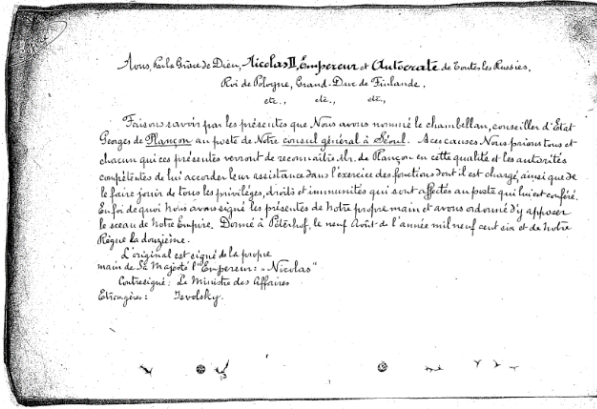 Nous, Par la Grâce de Dieu, Nicolas II, Empereur et Autocrate de toutes les Russies,
Roi de Pologne, Grand-Duc de Finlande,
etc., etc., etc,
Faisons savoir par les présentes que Nous avons nommé le chambellan, conseiller d'Etat
Georges de Plançon au poste de Notre consul général à Séoul. A ces causes Nous prions tous et
chacun qui ces présentes verront de reconnaître Mr. de Plançon en cette qualité et les autorités
compétentes de lui accorder leur assistance dans l'exercice des fonctions dont il est chargé, ainsi que de
le faire jouir de tous les privilèges, droits et immunités qui sont affectés au poste qui lui est conféré.
En foi de quoi Nous avons signé les présentes de Notre propre main et avons ordonné d'y apposer
le sceau de Notre Empire. Donné à Péterhof, le neuf Août de l'année mil neuf cent six et de Notre
Règne la douzième.
L'original est signé de la propre
main de Sa Majesté l'Empereur: „Nicolas"
Contresigné: Le Ministre des Affaires
Etrangères: Isvolsky.